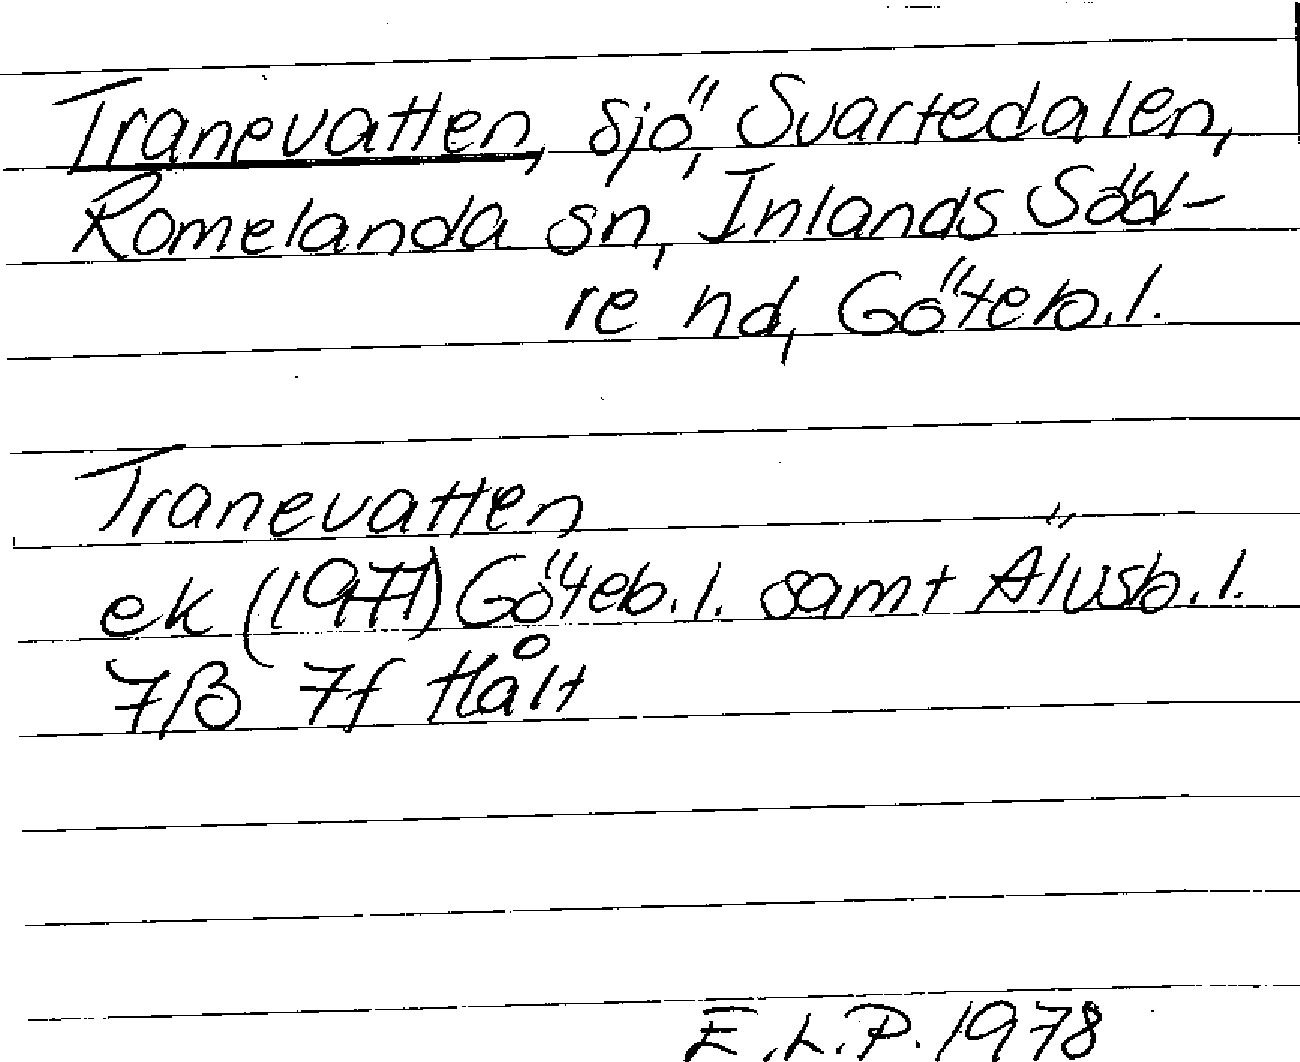 Tranevatten, sjö, Svartedalen,
Romelanda sn, Inlands Söd-
re hd, Göteb. l.
Tranevatten
ek (1977) Göteb. l. samt Älvsb. l.
7B 7f Hålt
E.L.P. 1978